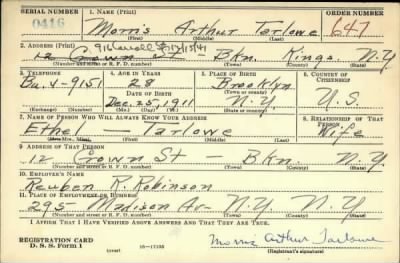 SERIAL NUMBER 1. NAME (Print) ORDER NUMBER
0416 Morris Arthur Tarlowe 647
(First) (Middle) (Last)
2. ADDRESS (Print)
12 Crown St — Bkn. Kings. N.Y
(Number and street or R. F. D. number) (Town) (County) (State)
3. TELEPHONE 4. AGE IN YEARS 5. PLACE OF BIRTH 6. COUNTRY OF CITIZENSHIP
Bu. 4-9151 28 Brooklyn
DATE OF BIRTH (Town or county)
Dec. 25, 1911 N.Y U.S.
(Exchange) (Number) (Mo.) (Day) (Yr.) (State or country)
7. NAME OF PERSON WHO WILL ALWAYS KNOW YOUR ADDRESS 8. RELATIONSHIP OF THAT PERSON
Ethel — Tarlowe Wife
9. ADDRESS OF THAT PERSON
12 Crown St — Bkn. N.Y
(Number and street or R. F. D. number) (Town) (County) (State)
10. EMPLOYER'S NAME
Reuben R. Robinson
11. PLACE OF EMPLOYMENT OR BUSINESS
295 — Madison Av — N.Y. N.Y
(Number and street or R. F. D. number) (Town) (County) (State)
I AFFIRM THAT I HAVE VERIFIED ABOVE ANSWERS AND THAT THEY ARE TRUE.
REGISTRATION CARD
D. S. S. Form 1 (over) 16-17105 Morris Arthur Tarlowe
(Registrant's signature)